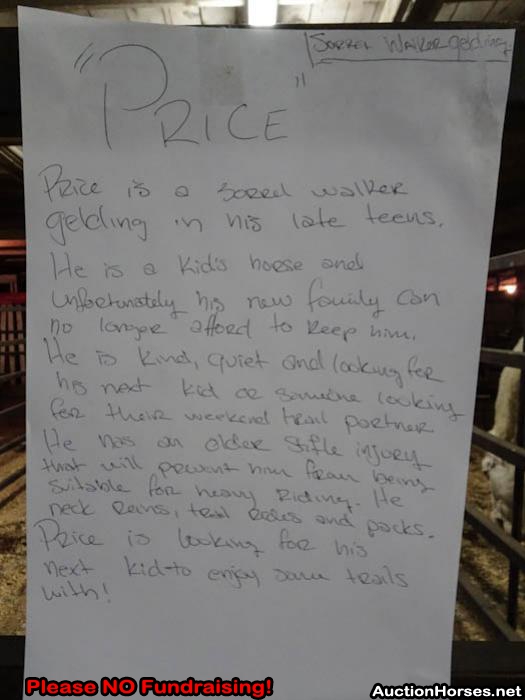 Sorrel Walker gelding.
"PRICE"
Price is a sorrel walker
gelding in his late teens.
He is a kid's horse and
unfortunately his new family can
no longer afford to keep him.
He is kind, quiet and looking for
his next kid or someone looking
for their weekend trail partner
He has an older stifle injury
that will prevent him from being
suitable for heavy riding. He
neck reins, trail rides and packs.
Price is looking for his
next kid to enjoy some trails
with!
Please NO Fundraising!
AuctionHorses.net